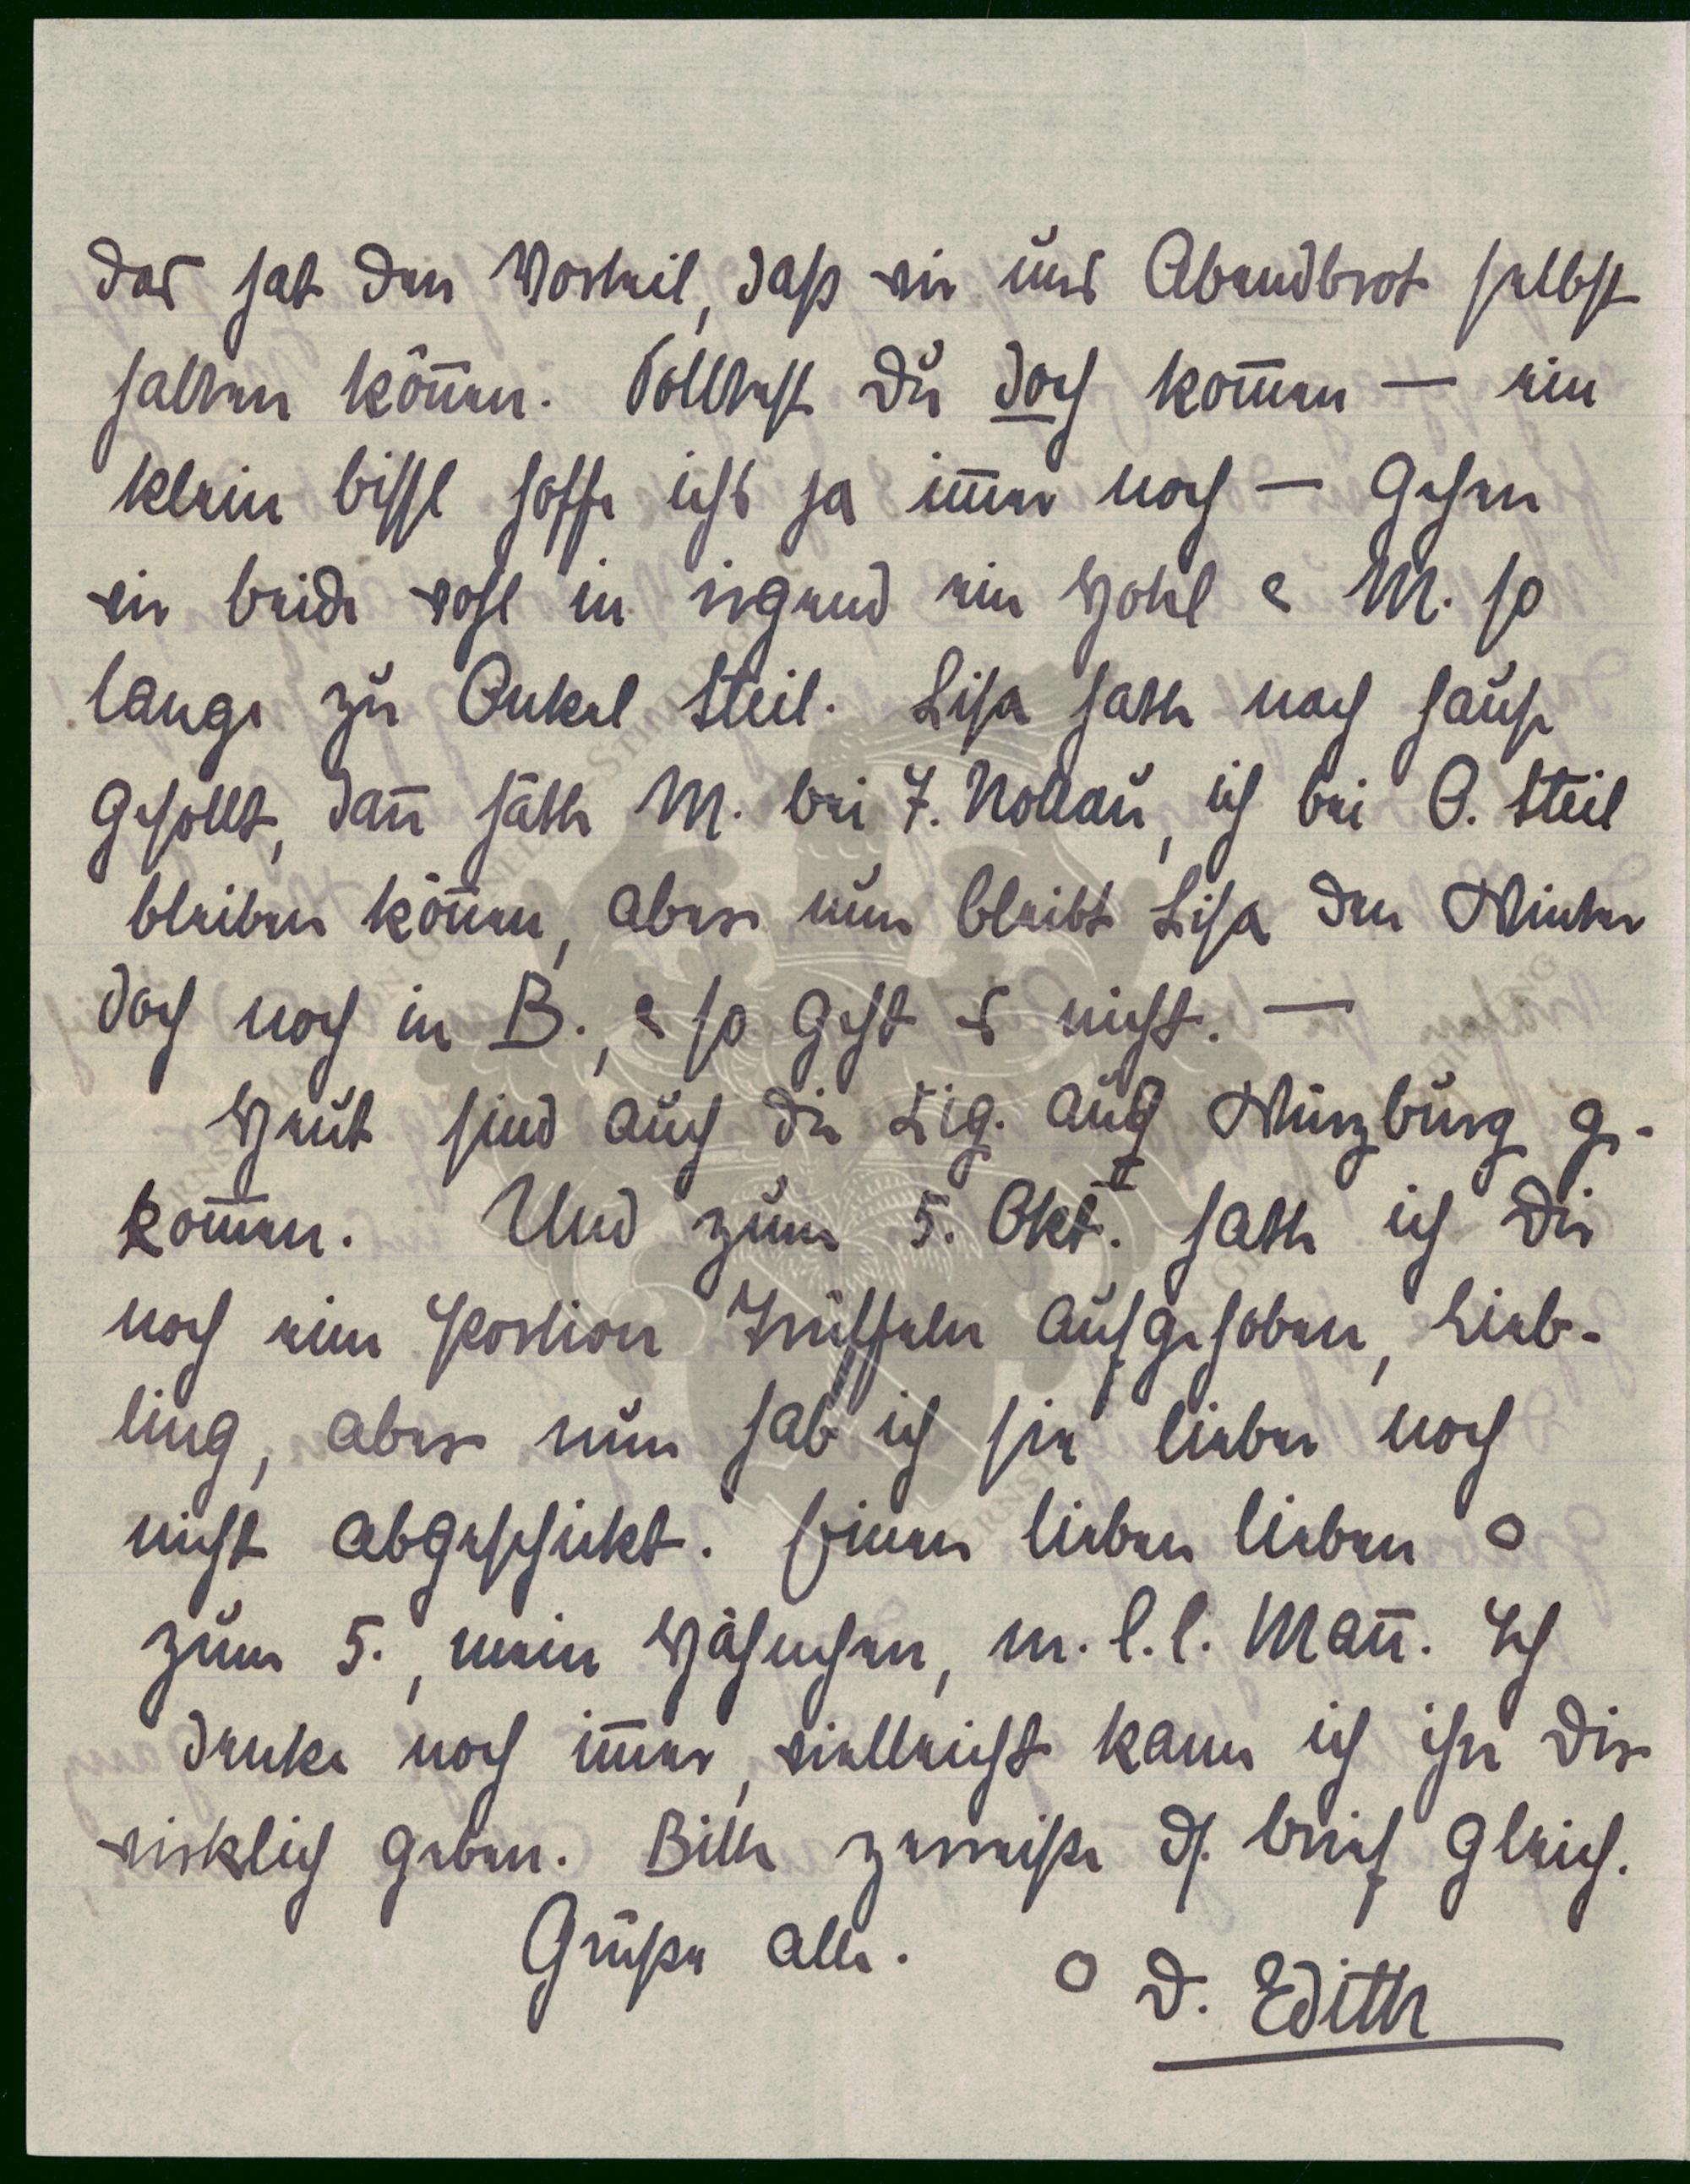 das hat den Vorteil, daß wir uns Abendbrot selbst
halten kön̄en. Solltest Du doch kom̄en — ein
klein bissl hoffe ichs ja im̄er noch — gehen
wir beide wohl in irgend ein Hotel & M. so
lange zu Onkel Steil. Lisa hatte nach Hause
gesollt, dan̄ hätte M. bei F. Nollau, ich bei O. Steil
bleiben kön̄en, aber nun bleibt Lisa den Winter
doch noch in B., & so geht es nicht. —
Heut sind auch die Zig. aus Würzburg ge-
kom̄en. Und zum 5. Okt. II hatte ich Dir
noch eine Portion Trüffeln aufgehoben, Lieb-
ling, aber nun hab ich sie lieber noch
nicht abgeschickt. Einen lieben lieben o
zum 5., mein Hähnchen, m. l. l. Man̄. Ich
denke noch im̄er, vielleicht kann ich ihn Dir
wirklich geben. Bitte zerreiße ds. Brief gleich.
Grüße alle. o D. Edith
GERNSHEIM-STIFTUNG